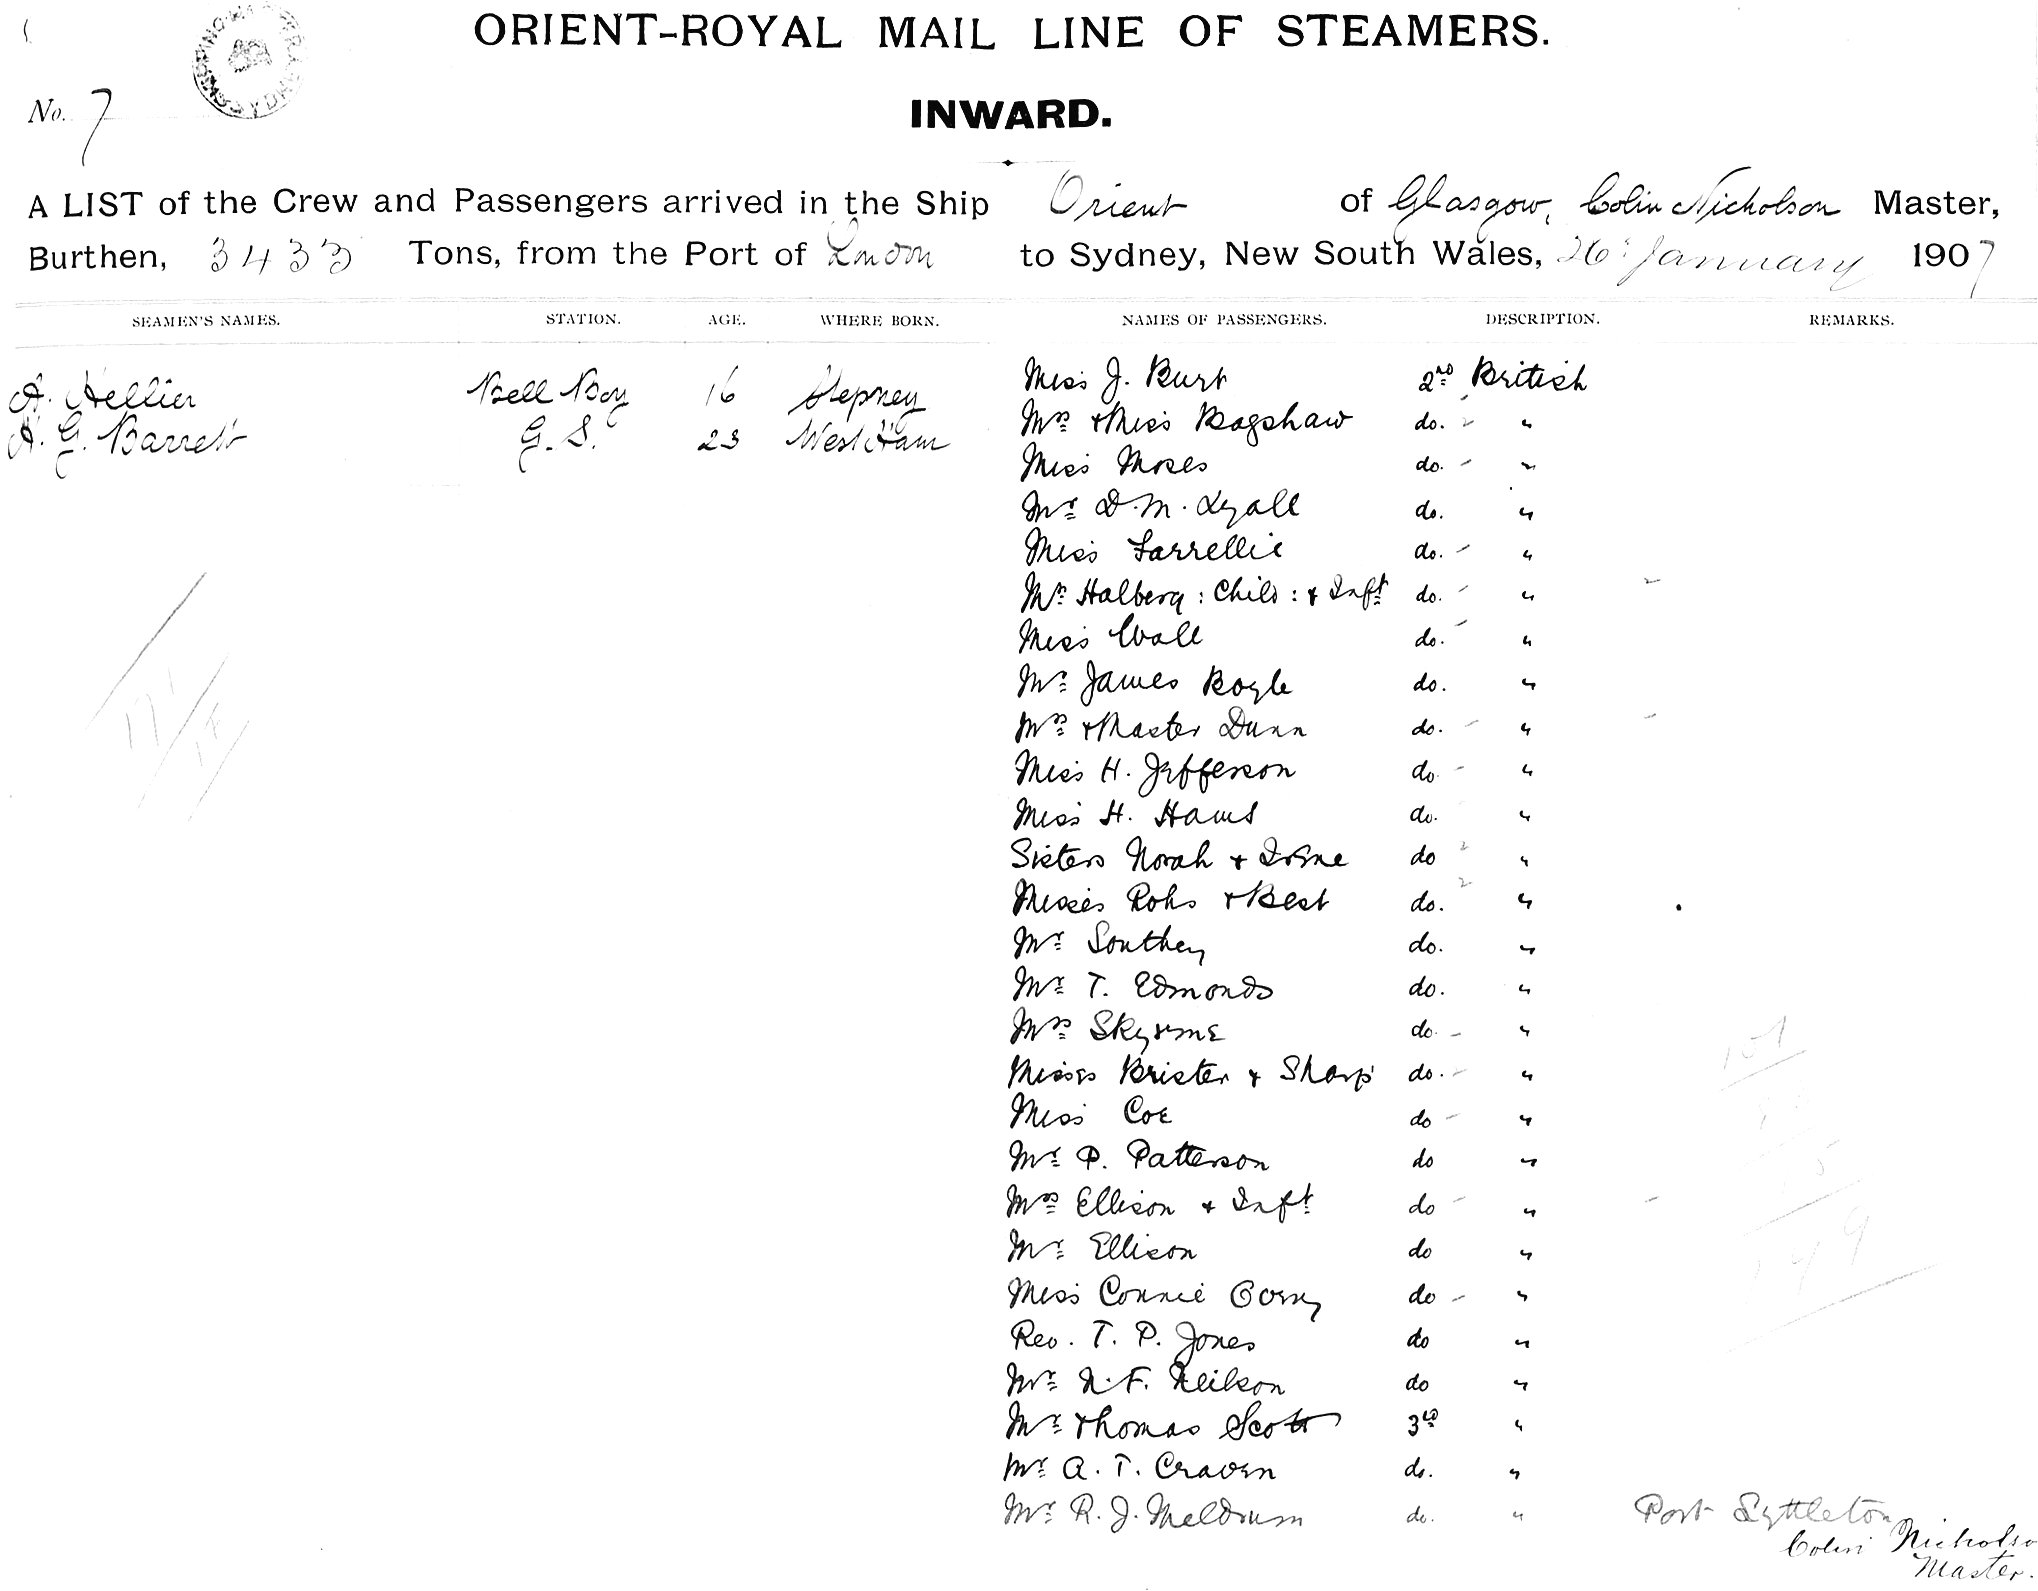 ORIENT-ROYAL MAIL LINE OF STEAMERS.
No. 7
INWARD.
A LIST of the Crew and Passengers arrived in the Ship Orient of Glasgow, Colin Nicholson Master,
Burthen, 3433 Tons, from the Port of London to Sydney, New South Wales, 26 January 1907
SEAMEN'S NAMES. STATION. AGE. WHERE BORN. NAMES OF PASSENGERS. DESCRIPTION. REMARKS.
A. Hellier Bell Boy 16 Stepney Miss J. Burt 2nd British
A. G. Barrett G. S. 23 West Ham Mrs + Miss Bagshaw do. 2 "
Miss Moses do. - "
Mr D. M. Lyall do. "
Miss Farrellie do. - "
Mrs Halberg : Child : + Inft do. - "
Miss Wall do. - "
Mr James Boyle do. "
Mrs + Master Dunn do. - "
Miss H. Jefferson do. - "
Miss H. do. "
Sisters Norah + do 2 "
Misses Rohs + Best do. 2 "
Mr Southey do. "
Mr T. Edmonds do. "
Mrs Skyrme do. - "
Misses Brister + Sharp do. - "
Miss Coe do - "
Mr P. Patterson do "
Mrs Ellison + Inft do - "
Mr Ellison do "
Miss Connie do - "
Rev. T. P. Jones do "
Mr N. F. Neilson do "
Mr Thomas Scott 3rd "
Mr A. T. Craven do. "
Mr R. J. Meldrum do. " Port Lyttleton
Colin Nicholso
Master.